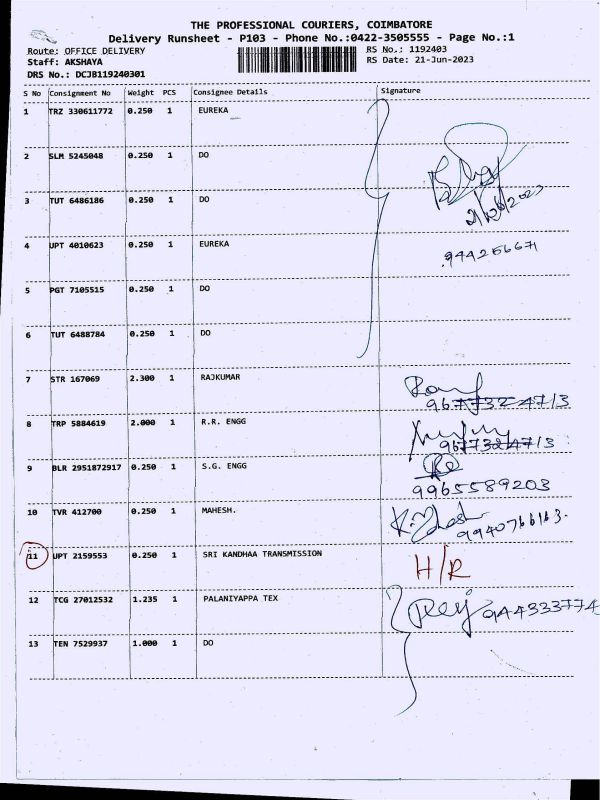 THE PROFESSIONAL COURIERS, COIMBATORE
Delivery Runsheet - P103 - Phone No.:0422-3505555 - Page No.:1
Route: OFFICE DELIVERY RS No.: 1192403
Staff: AKSHAYA RS Date: 21-Jun-2023
DRS No.: DCJB119240301
S No Consignment No Weight PCS Consignee Details Signature
1 TRZ 330611772 0.250 1 EUREKA
2 SLM 5245048 0.250 1 DO
3 TUT 6486186 0.250 1 DO
21/06/2023
4 UPT 4010623 0.250 1 EUREKA
944256671
5 PGT 7105515 0.250 1 DO
6 TUT 6488784 0.250 1 DO
7 STR 167069 2.300 1 RAJKUMAR
9677324713
8 TRP 5884619 2.000 1 R.R. ENGG
9677324713
9 BLR 2951872917 0.250 1 S.G. ENGG
9965589203
10 TVR 412700 0.250 1 MAHESH.
9940766163.
11 UPT 2159553 0.250 1 SRI KANDHAA TRANSMISSION H/R
12 TCG 27012532 1.235 1 PALANIYAPPA TEX 944333774
13 TEN 7529937 1.000 1 DO